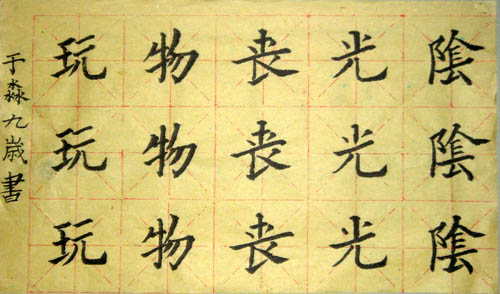 玩物丧光陰
玩物丧光陰
玩物丧光陰
于淼九歲書